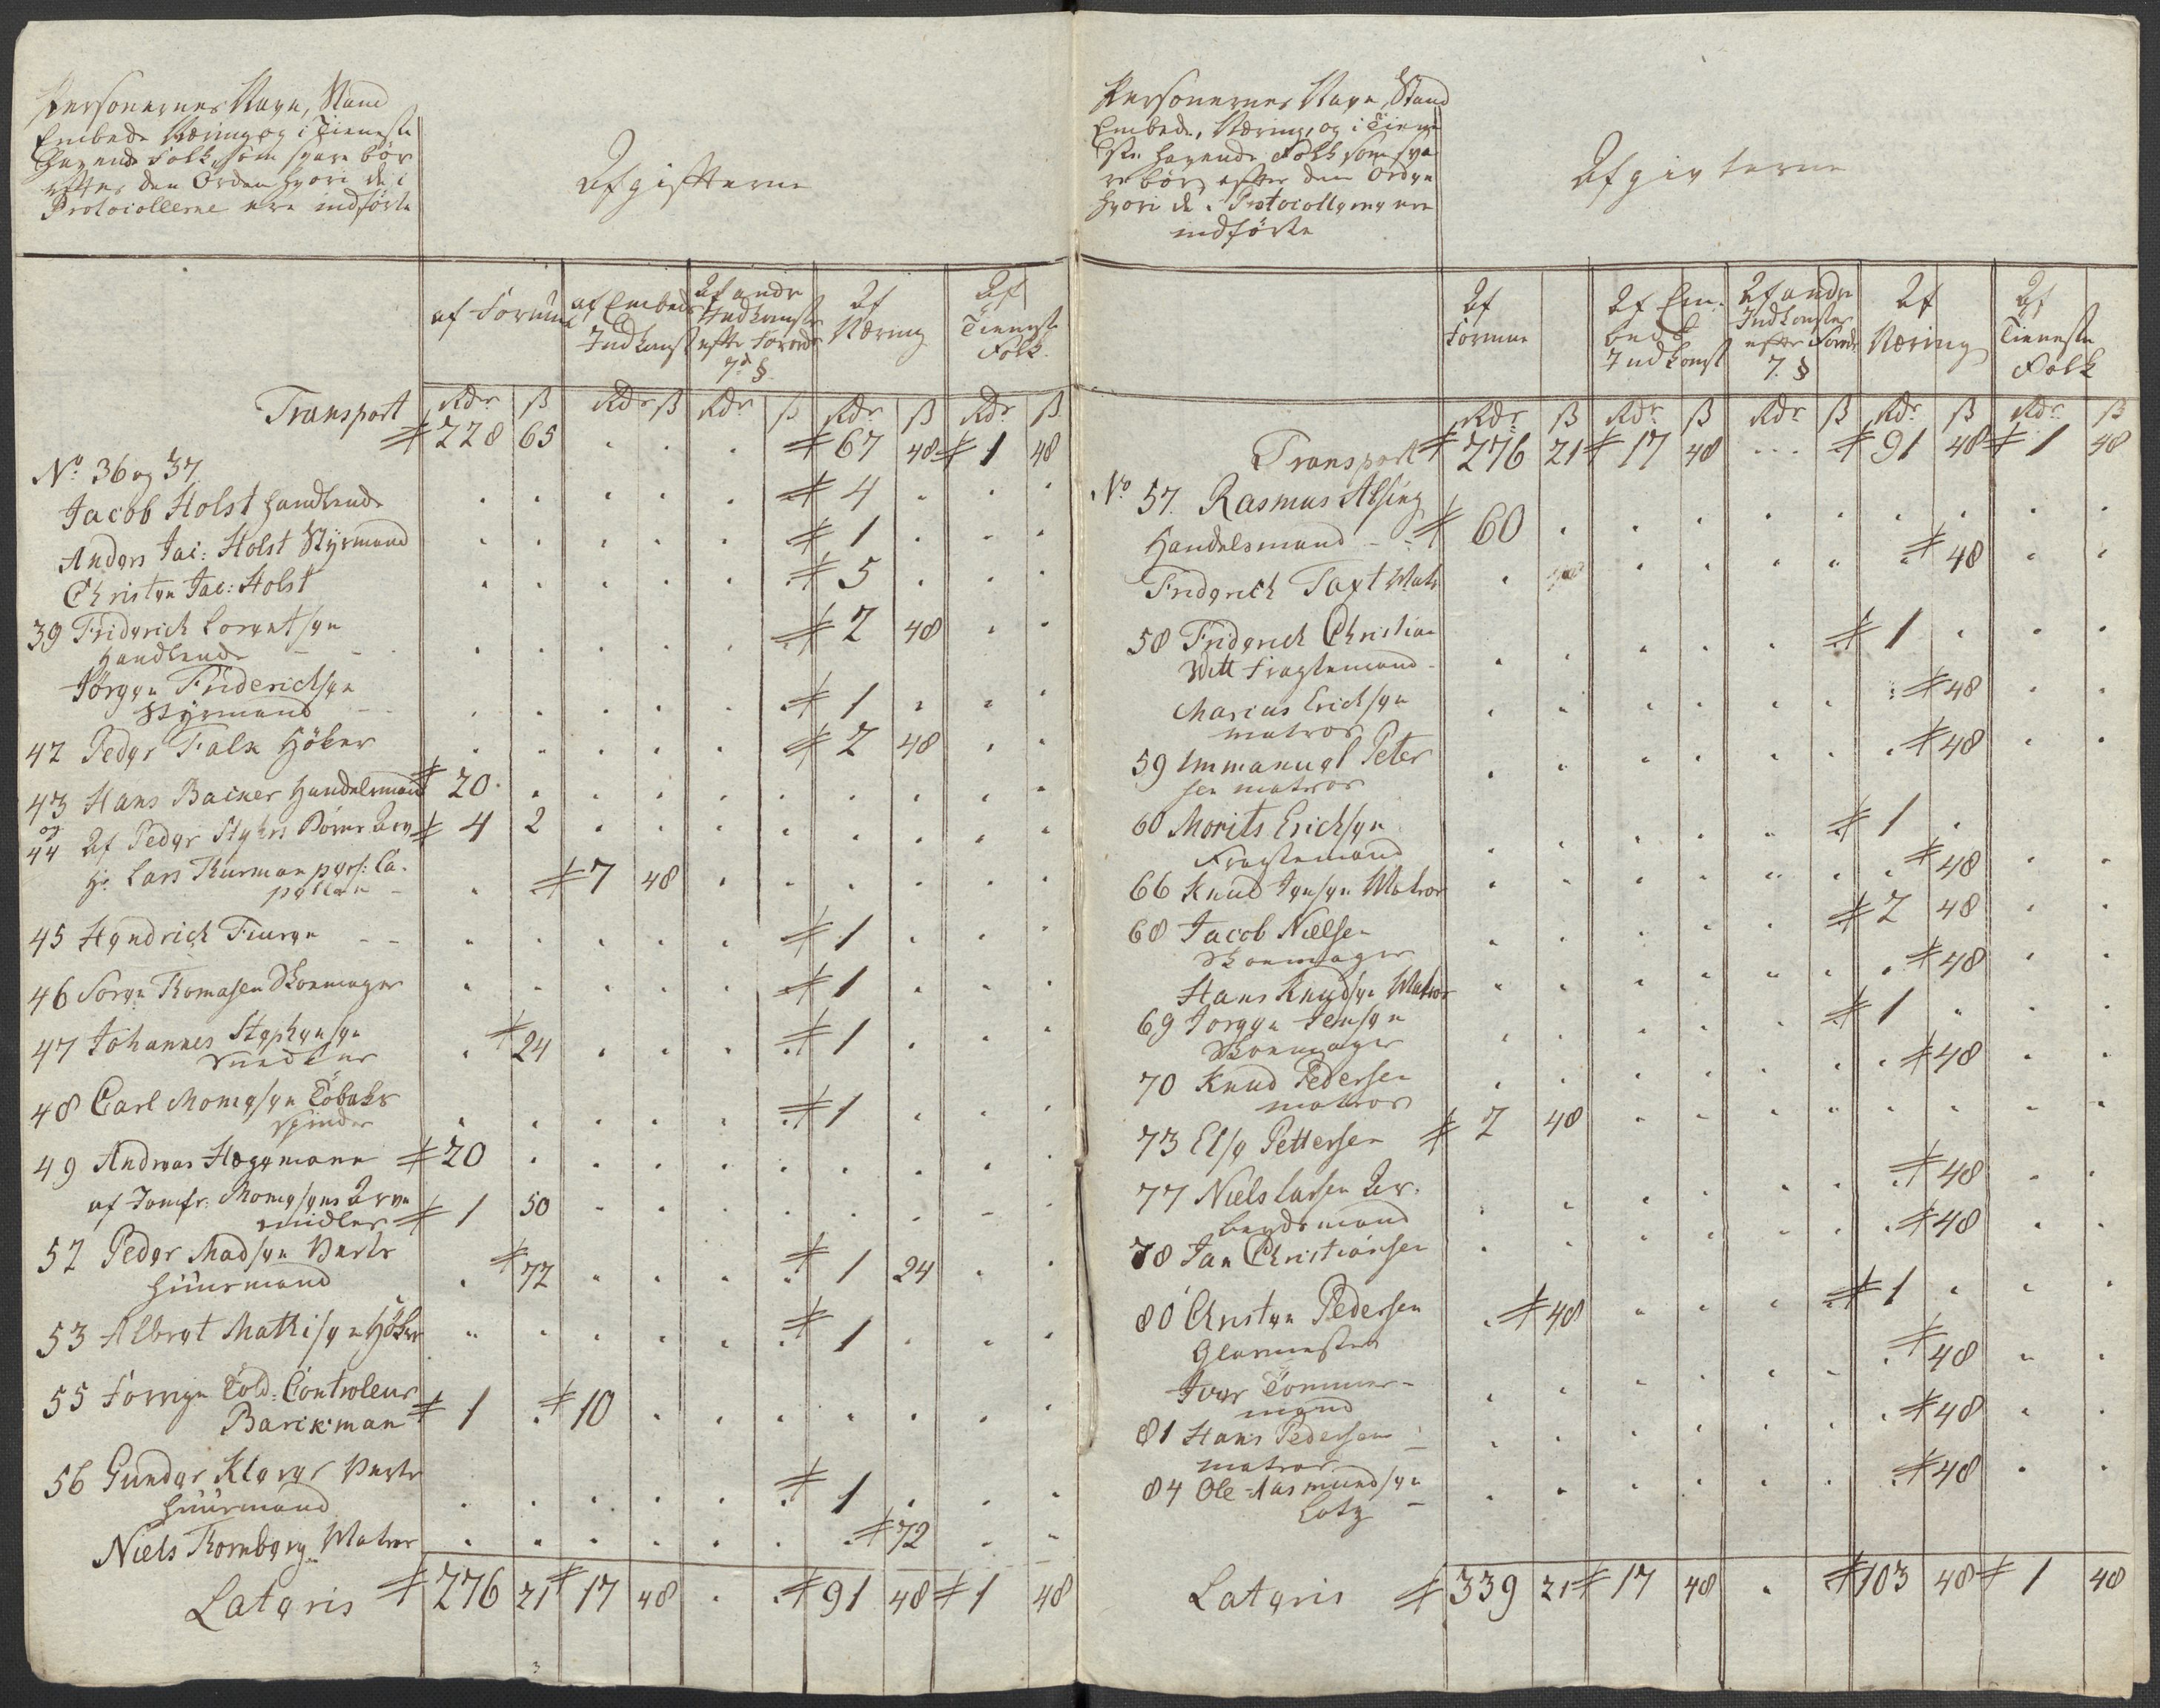 Personernes Navn, Stand
Embede Næring og i Tieneste
havende Folk, som svare bör
efter den Orden hvori de i
Protocollerne ere indförte
Afgifterne
af Formue
af Embeds Indkomst
Af andre Indkomster efter Forordn 7de §
Af Næring
Af Tieneste Folk
Transport Rdr ß Rdr ß Rdr ß Rdr ß Rdr ß
228 65 . . . 67 48 1 48
No 36 og 37
Jacob Holst handlende 4
Anders Jac: Holst Styrmand 1
Christen Jac: Holst 5
39 Friderich Lorentsen
Handlende 2 48
Jörgen Friderichsen
Styrmand 1
42 Peder Falk Höker 2 48
43 Hans Backer Handelsmand 20
og
44 Af Peder Styhrs Börns Arv 4 2
Hr Lars Thurman pers: Ca-
pellan 7 48
45 Hendrich Fieuren 1
46 Soren Thomasen Skoemager 1
47 Johannes Stephensen
Snedker 24 1
48 Carl Momesen Tobaks
spinder 1
49 Andreas Hoegemann 20
af Jomfr: Momesens Arve
midler 1 50
52 Peder Madsen Verts
huusmand 72 1 24
53 Albret Mathisen Höker 1
55 Forrige Told: Controleur
Barikman 1 10
56 Gunder Klever Verts
huusmand 1
Niels Thornberg Matros 72
Lateris 276 21 17 48 . 91 48 1 48
Personernes Navn, Stand
Embede, Næring, og i Tiene
ste havende Folk som sva
re bör efter den Orden
hvori de i Protocollerne ere
indförte
Afgivterne
Af Formue
Af Em-
beds
Indkomst
Af andre
Indkomster
efter Forordn
7 §
Af
Næring
Af
Tieneste
Folk
Rdr ß Rdr ß Rdr ß Rdr ß Rdr ß
Transport 276 21 17 48 ... 91 48 1 48
No 57. Rasmus Alsing
Handelsmand 60
Friderich Taxt Matr 48
58 Friderich Christian
Witt Fragtemand 1
Marius Ericksen
matros 48
59 Immanuel Peter
sen matros 48
60 Morits Ericksen
Fragtemand 1
66 Knud Jensen Matros 48
68 Jacob Nielsen
Skoemager 2 48
Hans Knudsen Matros 48
69 Jorgen Jensen
Skoemager 1
70 Knud Pedersen
matros 48
73 Else Pettersen 2 48
77 Niels Larsen Ar-
beydsmand 48
78 Jan Christiansen 48
80 Christen Pedersen
Glarmester 48 1
Iver Tömmer-
mand 48
81 Hans Pedersen
matros 48
84 Ole Aasmundsen
Lotz 48
Lateris 339 21 17 48 . 103 48 1 48